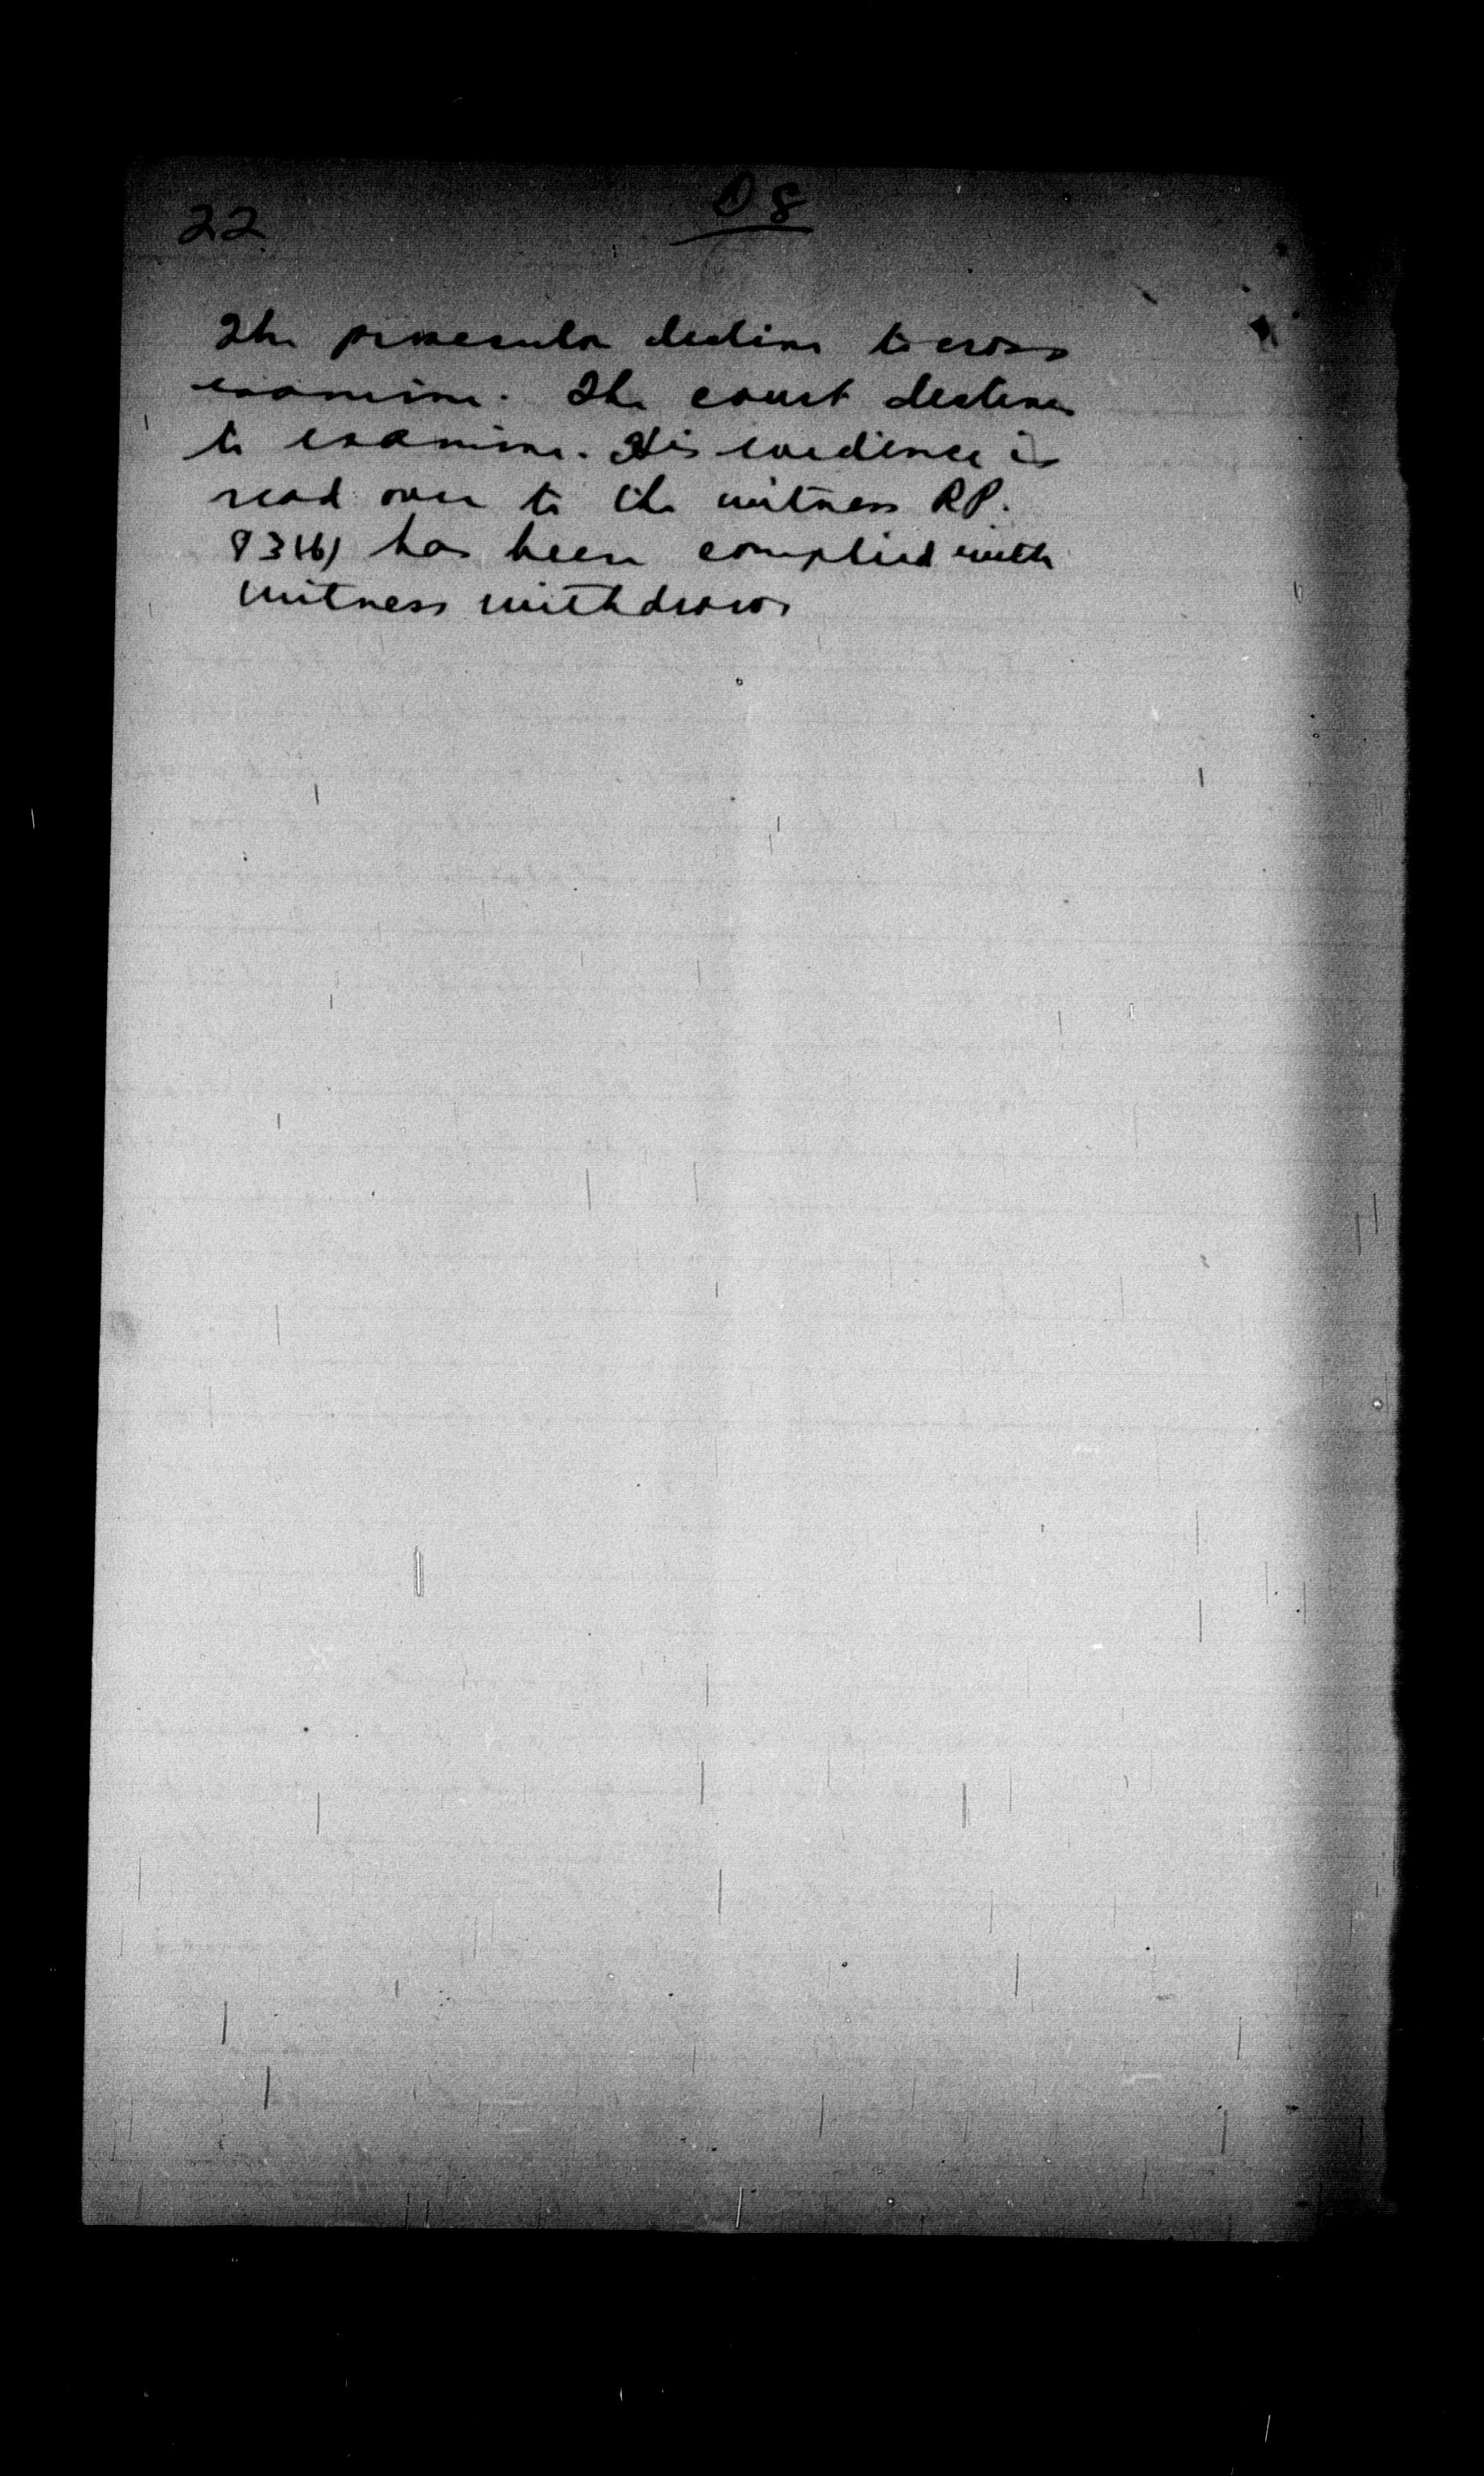 22
D 8
The prosecutor declines to cross
examine. The court declines
to examine. His evidence is
read over to the witness RP.
83(b) has been complied with
witness withdraws